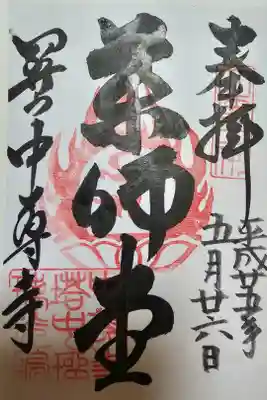 奉拝
平成廿五年
五月廿六日
薬師堂
中尊寺